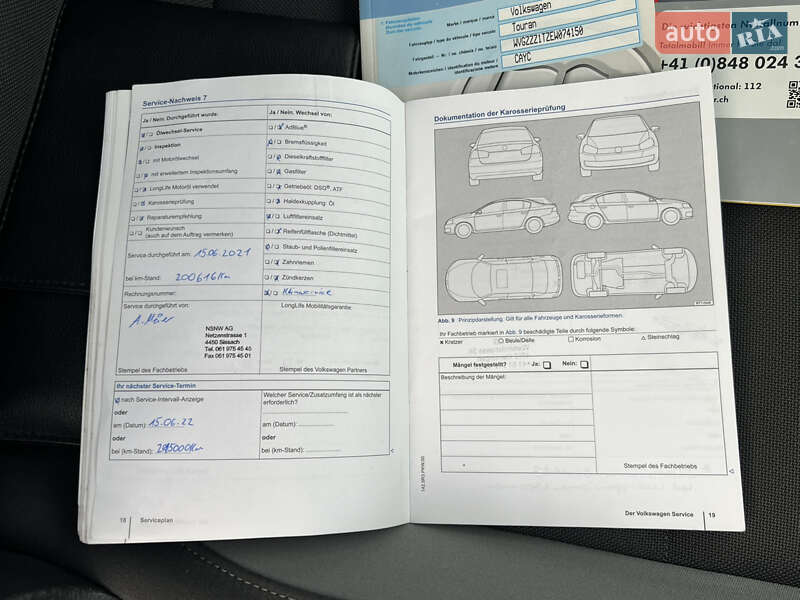 Fahrzeugdaten
Données du véhicule
Marke / marque / marca
Volkswagen
Fahrzeugtyp / type du véhicule / tipo veicolo
Touran
WVGZZZ1TZEW074150
Motorkennzeichen / identification du moteur /
identificazione motore
CAYC
auto RIA.com
+41 (0)848 024 3
Totalmobil! Immer
112
Service-Nachweis 7
Ja / Nein. Durchgeführt wurde:
Ölwechsel-Service
Inspektion
mit Motorölwechsel
mit erweitertem Inspektionsumfang
LongLife Motoröl verwendet
Karosserieprüfung
Reparaturempfehlung
Kundenwunsch
(auch auf dem Auftrag vermerken)
Service durchgeführt am: 15.06.2021
bei km-Stand: 200616 Km
Rechnungsnummer:
Service durchgeführt von:
NSNW AG
Netzenstrasse 1
4450 Sissach
Tel. 061 975 45 45
Fax 061 975 45 01
Stempel des Fachbetriebs
Ja / Nein. Wechsel von:
AdBlue®
Bremsflüssigkeit
Dieselkraftstofffilter
Gasfilter
Getriebeöl: DSG®, ATF
Haldexkupplung: Öl
Luftfiltereinsatz
Reifenfüllflasche (Dichtmittel)
Staub- und Pollenfiltereinsatz
Zahnriemen
Zündkerzen
LongLife Mobilitätsgarantie:
Stempel des Volkswagen Partners
Ihr nächster Service-Termin
nach Service-Intervall-Anzeige
oder
am (Datum): 15.06.22
oder
bei (km-Stand):
Welcher Service/Zusatzumfang ist als nächster
erforderlich?
am (Datum):
oder
bei (km-Stand):
18 Serviceplan
Dokumentation der Karosserieprüfung
Abb. 9 Prinzipdarstellung: Gilt für alle Fahrzeuge und Karosserieformen.
Ihr Fachbetrieb markiert in Abb. 9 beschädigte Teile durch folgende Symbole:
× Kratzer
○ Beule/Delle
□ Korrosion
△ Steinschlag
Mängel festgestellt? Ja: Nein:
Beschreibung der Mängel:
Stempel des Fachbetriebs
Der Volkswagen Service 19